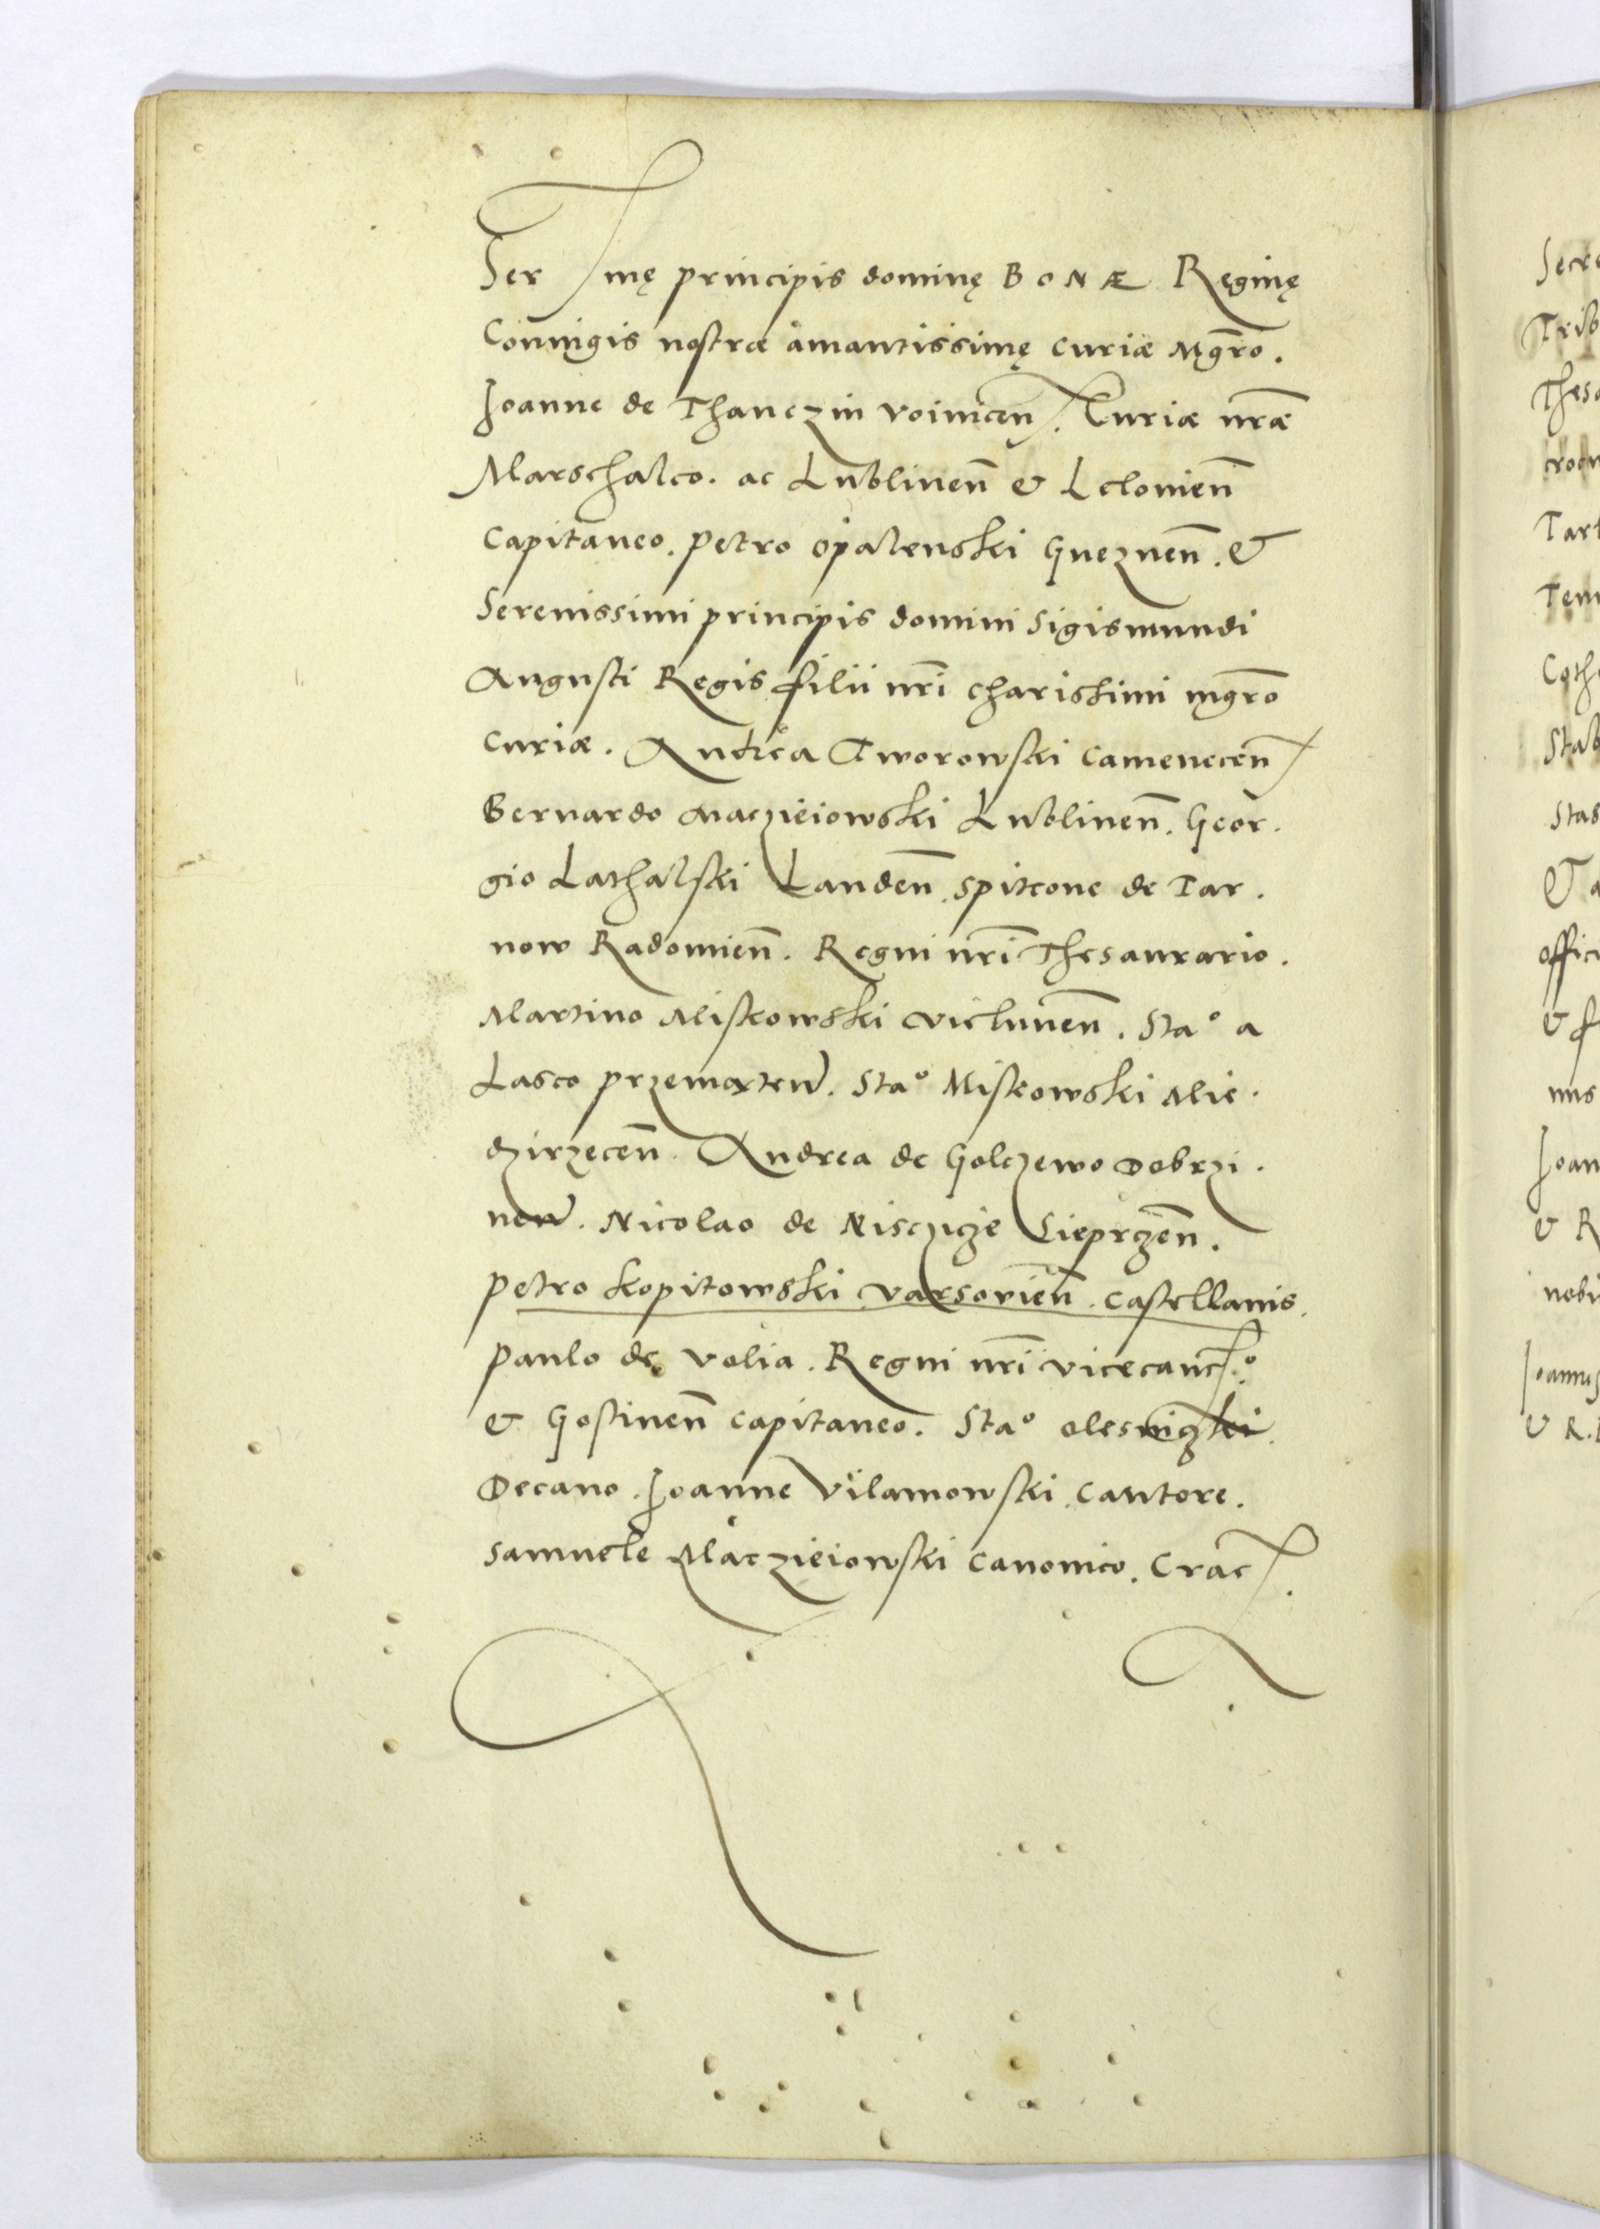 Ser mę principis dominę BONÆ Reginę
Coniugis nostræ amantissimę curiæ Mgro.
Joanne de Thanczin voinicen̄. Curiæ nr̄æ
Marschalco. ac Lublinen̄ & Lelouien̄
Capitaneo. Petro Opalenski Gneznen̄. &
Serenissimi principis domini Sigismundi
Augusti Regis filii nr̄i charissimi mgr̄o
curiæ. Andrea Tworowski camenecen̄
Bernardo Maczieiowski Lublinen̄. Geor.
gio Lathalski Landen̄. Spitcone de Tar.
now Radomien̄. Regni nr̄i Thesaurario.
Martino Miskowski vielunen̄. Sta° a
Lasco przemexten̄. Sta° Miskowski Mie.
dzirzecen̄. Andrea de Golczewo Dobrzi.
nen̄. Nicolao de Nisczicze Sieprczen̄.
Petro Kopitowski varsovien̄. castellanis.
Paulo de volia. Regni nr̄i vicecanc°.
& Gostinen̄ capitaneo. Sta° olesniczki.
Decano. Joanne Vilamowski. Cantore.
Samuele Maczieiowski canonico. Crac.
Secre
Trib
Thesa
croen
Tart
Tem
Stab
Stas
offici
& f
nus
Joan
& R
nobi
& R.